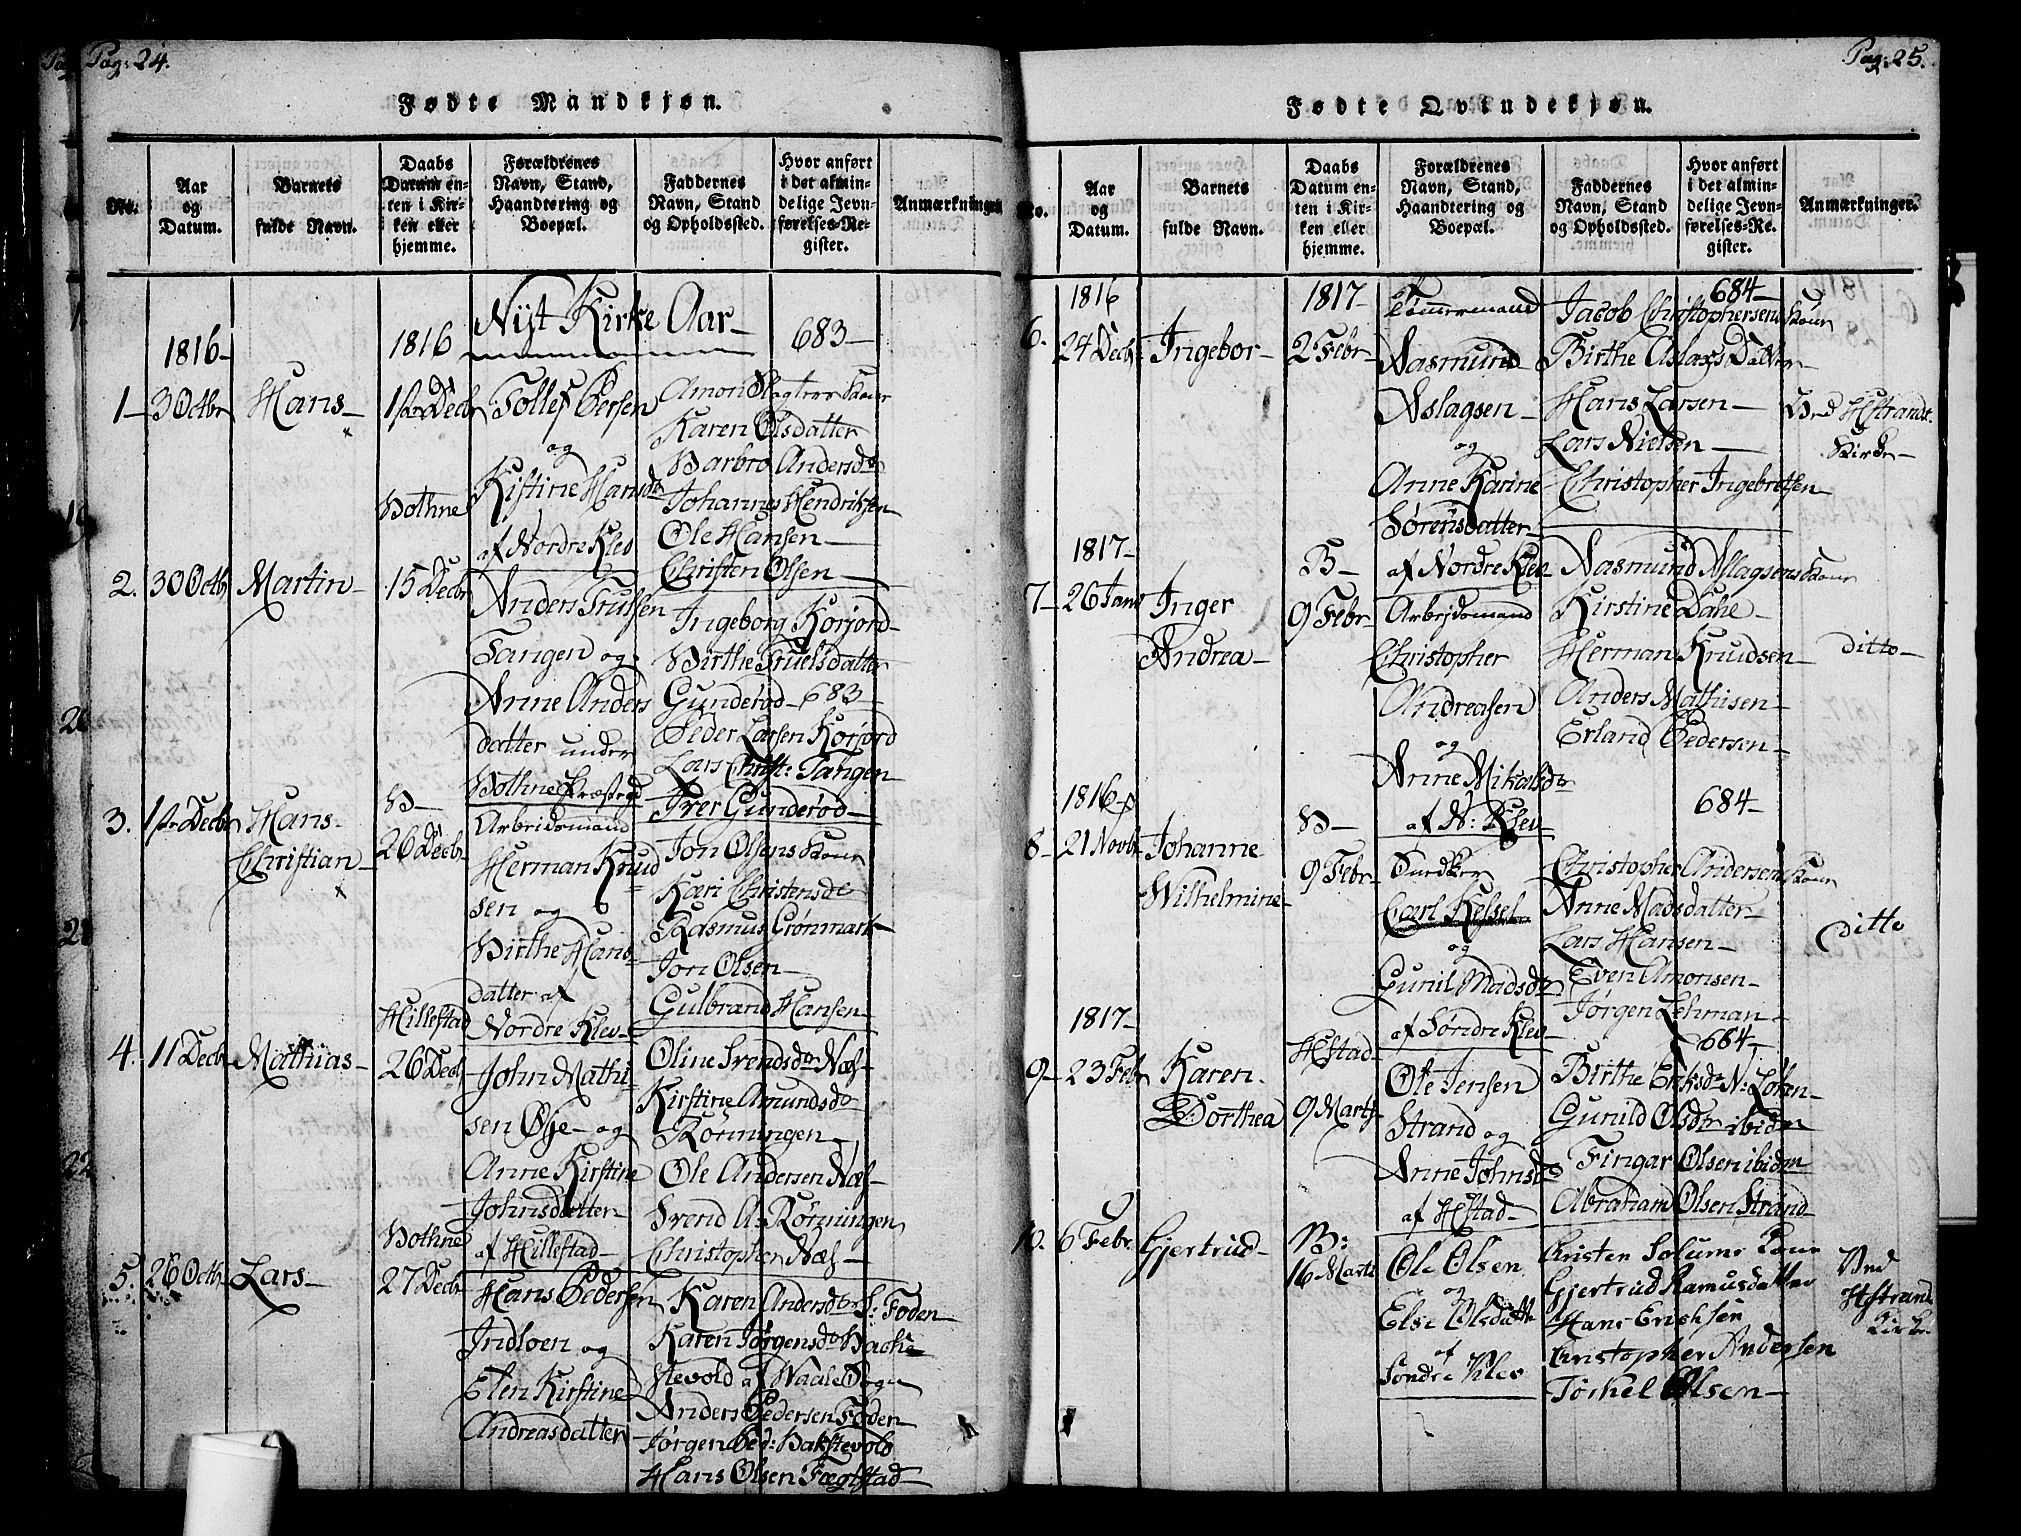 Pag: 24.
Fødte Mandkjøn.
No.
Aar
og
Datum.
Barnets
fulde Navn.
Daabs
Datum en-
ten i Kir-
ken eller
hjemme.
Forældrenes
Navn, Stand,
Haandtering og
Boepæl.
Faddernes
Navn, Stand
og Opholdssted.
Hvor anført
i det almin-
delige Jevn-
førelses-Re-
gister.
Anmærkninger
Nÿt Kirke Aar-
1816-
1816
683-
1- 3 Octbr
Hans-
1ste Decbr
Bothne
Tollef Persen
og
Kistine Hansdr
af Nordre Klev
Amon Slagters Kone
Karen Olsdatter
Barbro Andersdr
Johannes Hendriksen
Ole Hansen-
Christen Olsen-
2. 30 Octbr
Martin-
15 Decbr
B-
Anders Trulsen
Tangen og
Anne Anders
datter under
Bothne Præstgd
Ingeborg Korjord-
Birthe Truelsdatter
Gunderød- 683-
Peder Larsen Korjord
Lars Christ: Tangen
Iver Gunderød-
3. 1ste Decbr
Hans-
Christian-
26 Decbr
Hillestad
Arbeidsmand
Herman Knud
sen og
Birthe Hans
datter af
Nordre Klev-
Jon Olsens Kone
Kari Christensdr
Rasmus Grönmark-
Jon Olsen-
Gulbrand Hansen-
4. 11 Decbr
Mathias-
26 Decbr
Bothne
John Mathi-
sen Øÿe- og
Anne Kirstine
Johnsdatter
af Hillestad-
Oline Svendsdr Næs-
Kirstine Amundsdr
Rönningen-
Ole Andersen Næs-
Svend As Rönningen
Christopher Næs-
5. 26 Octbr
Lars-
27 Decbr
Hans Pedersen
Indloen og
Elen Kirstine
Andreasdatter-
Karen Andersdtr S: Foden
Karen Jörgensdr Backe
stevold af Waale Sogn
Anders Pedersen Foden
Jörgen Ped: Bakstevold
Hans Olsen Fægtstad-
Pag: 25.
Fødte Qvindekjøn.
No.
Aar
og
Datum.
Barnets
fulde Navn.
Daabs
Datum en-
ten i Kir-
ken eller
hjemme.
Forældrenes
Navn, Stand,
Haandtering og
Boepæl.
Faddernes
Navn, Stand
og Opholdssted.
Hvor anført
i det almin-
delige Jevn-
førelses-Re-
gister.
Anmærkninger.
1816
6. 24 Decbr
Ingebor-
1817-
2 Febr-
B-
Tømmermand
Aasmund
Aslagsen-
og
Anne Karine
Sørensdatter
af Nordre Klev
684-
Jacob Christophersens Kone
Birthe Aslags Datter
Hans Larsen-
Lars Nielsen-
Christopher Ingebretsen
Ved HStrands
Kirke-
1817-
7- 26 Janr
Inger
Andrea-
9 Febr-
B-
Arbejdsmand
Christopher
Andreasen
og
Anne Mikalsdr
af N: Klev
Aasmund Aslagsens Kone
Kirstine Dahl-
Herman Knudsen-
Anders Mathisen-
Erland Pedersen-
684-
ditto-
1816-
8- 21 Novbr
Johanne
Wilhelmine-
9 Febr-
HStad-
Snedker
Carl Kelsel
og
Gunil Madsdr
af Søndre Klev-
Christopher Andersens Kone
Anne Madsdatter-
Lars Hansen-
Even Amonsen-
Jørgen Lehman-
684-
ditto
1817-
9- 23 Febr
Karen
Dorthea
9 Marts
B:
Ole Jensen
Strand og
Anne Johnsdr
af HStad-
Birthe Eriksdr N: Løken-
Gunild Olsdr ibidm
Fingar Olsen ibidm
Abraham Olsen Strand
10. 6 Febr.
Gjertrud-
16 Marts
Ole Olsen
og
Else Olsdattr
af
Sondre Klev
Cristen Solums Kone
Gjertrud Ramusdatter
Hans Eriksen
Cristopher Andersen
Torkel Olsen-
Ved
HStrand
Kirke.